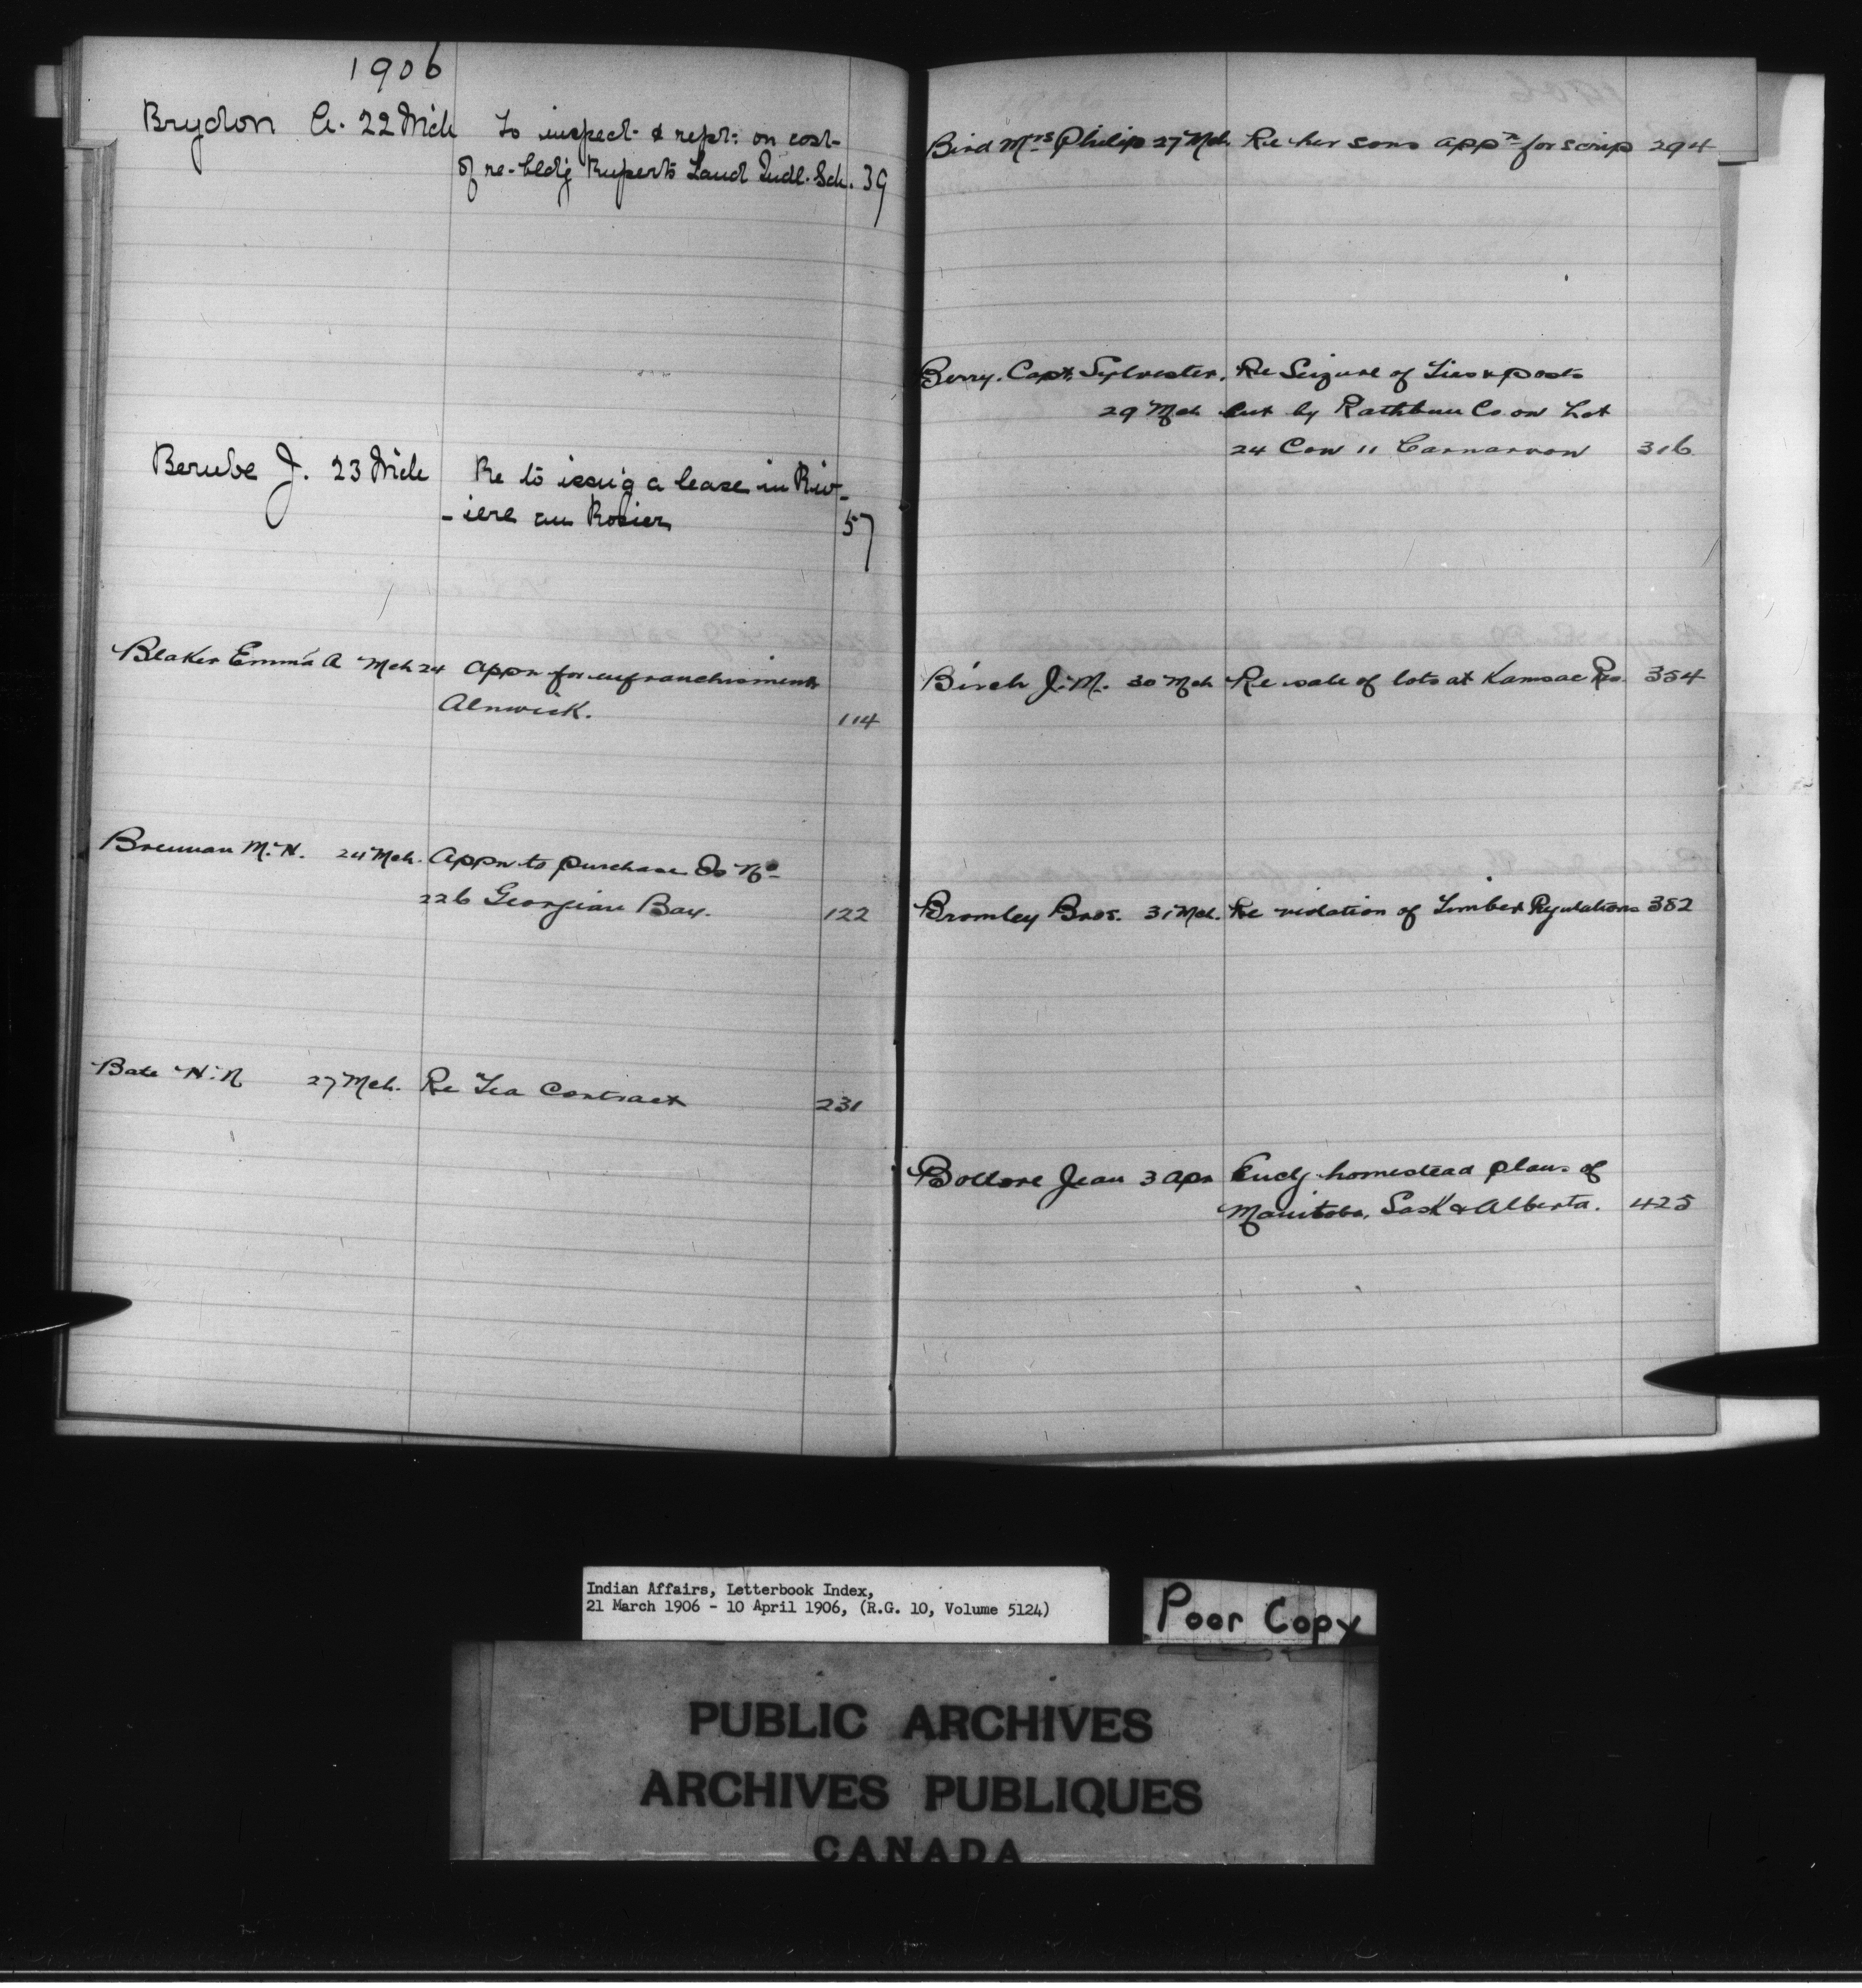 1906
Brydon A. 22 Mch To inspect & rept: on cost
of re-bldg Ruperts Land Indl. Sch. 39
Berube J. 23 Mch Re to issu'g a lease in Riv-
-iere au Rosier 57
Blaker Emma A Mch 24 Appn for enfranchisement
Alnwick. 114
Brennan M. H. 24 Mch. Appn to purchase Is No
226 Georgian Bay. 122
Bate H. N 27 Mch. Re Tea Contract 231
Bird Mrs Philip 27 Mch. Re her sons appn for scrip 294
Berry. Capt. Sylvester. Re Seizure of Ties & posts
29 Mch cut by Rathbun Co on Lot
24 Con 11 Carnarvon 316
Birch J. M. 30 Mch Re sale of lots at Kamsac Res. 354
Bromley Bros. 31 Mch. Re violation of Timber Regulations 382
Bollore Jean 3 Apr Encg homestead plans of
Manitoba, Sask & Alberta. 425
Indian Affairs, Letterbook Index,
21 March 1906 - 10 April 1906, (R.G. 10, Volume 5124)
Poor Copy
PUBLIC ARCHIVES
ARCHIVES PUBLIQUES
CANADA